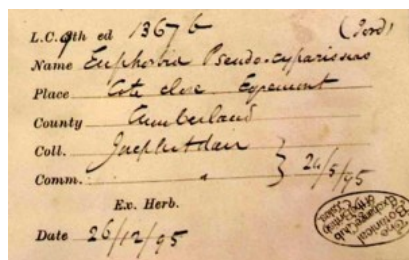 L.C. 9th ed 1367 b (Jord)
Name Euphorbia Pseudo-cyparissias
Place Cote close Egremont
County Cumberland
Coll. Joseph Adair
Comm. " 24/5/95
Ex. Herb.
Date 26/12/95
Botanical
Exchange Club
of the British